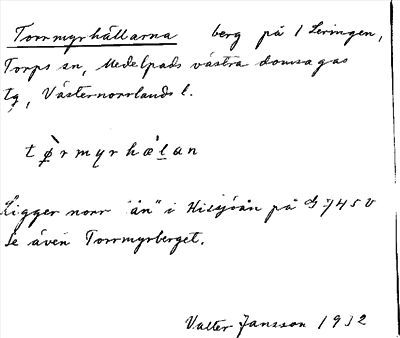 Torrmyrhällarna berg på 1 Leringen,
Torps sn, Medelpads västra domsagas
tg, Västernorrlands l.
t ø̀ r m y r h æ̀ l a n
Ligger norr "ån" i Hisjöån på G 745 V
Se även Torrmyrberget.
Valter Jansson 1932